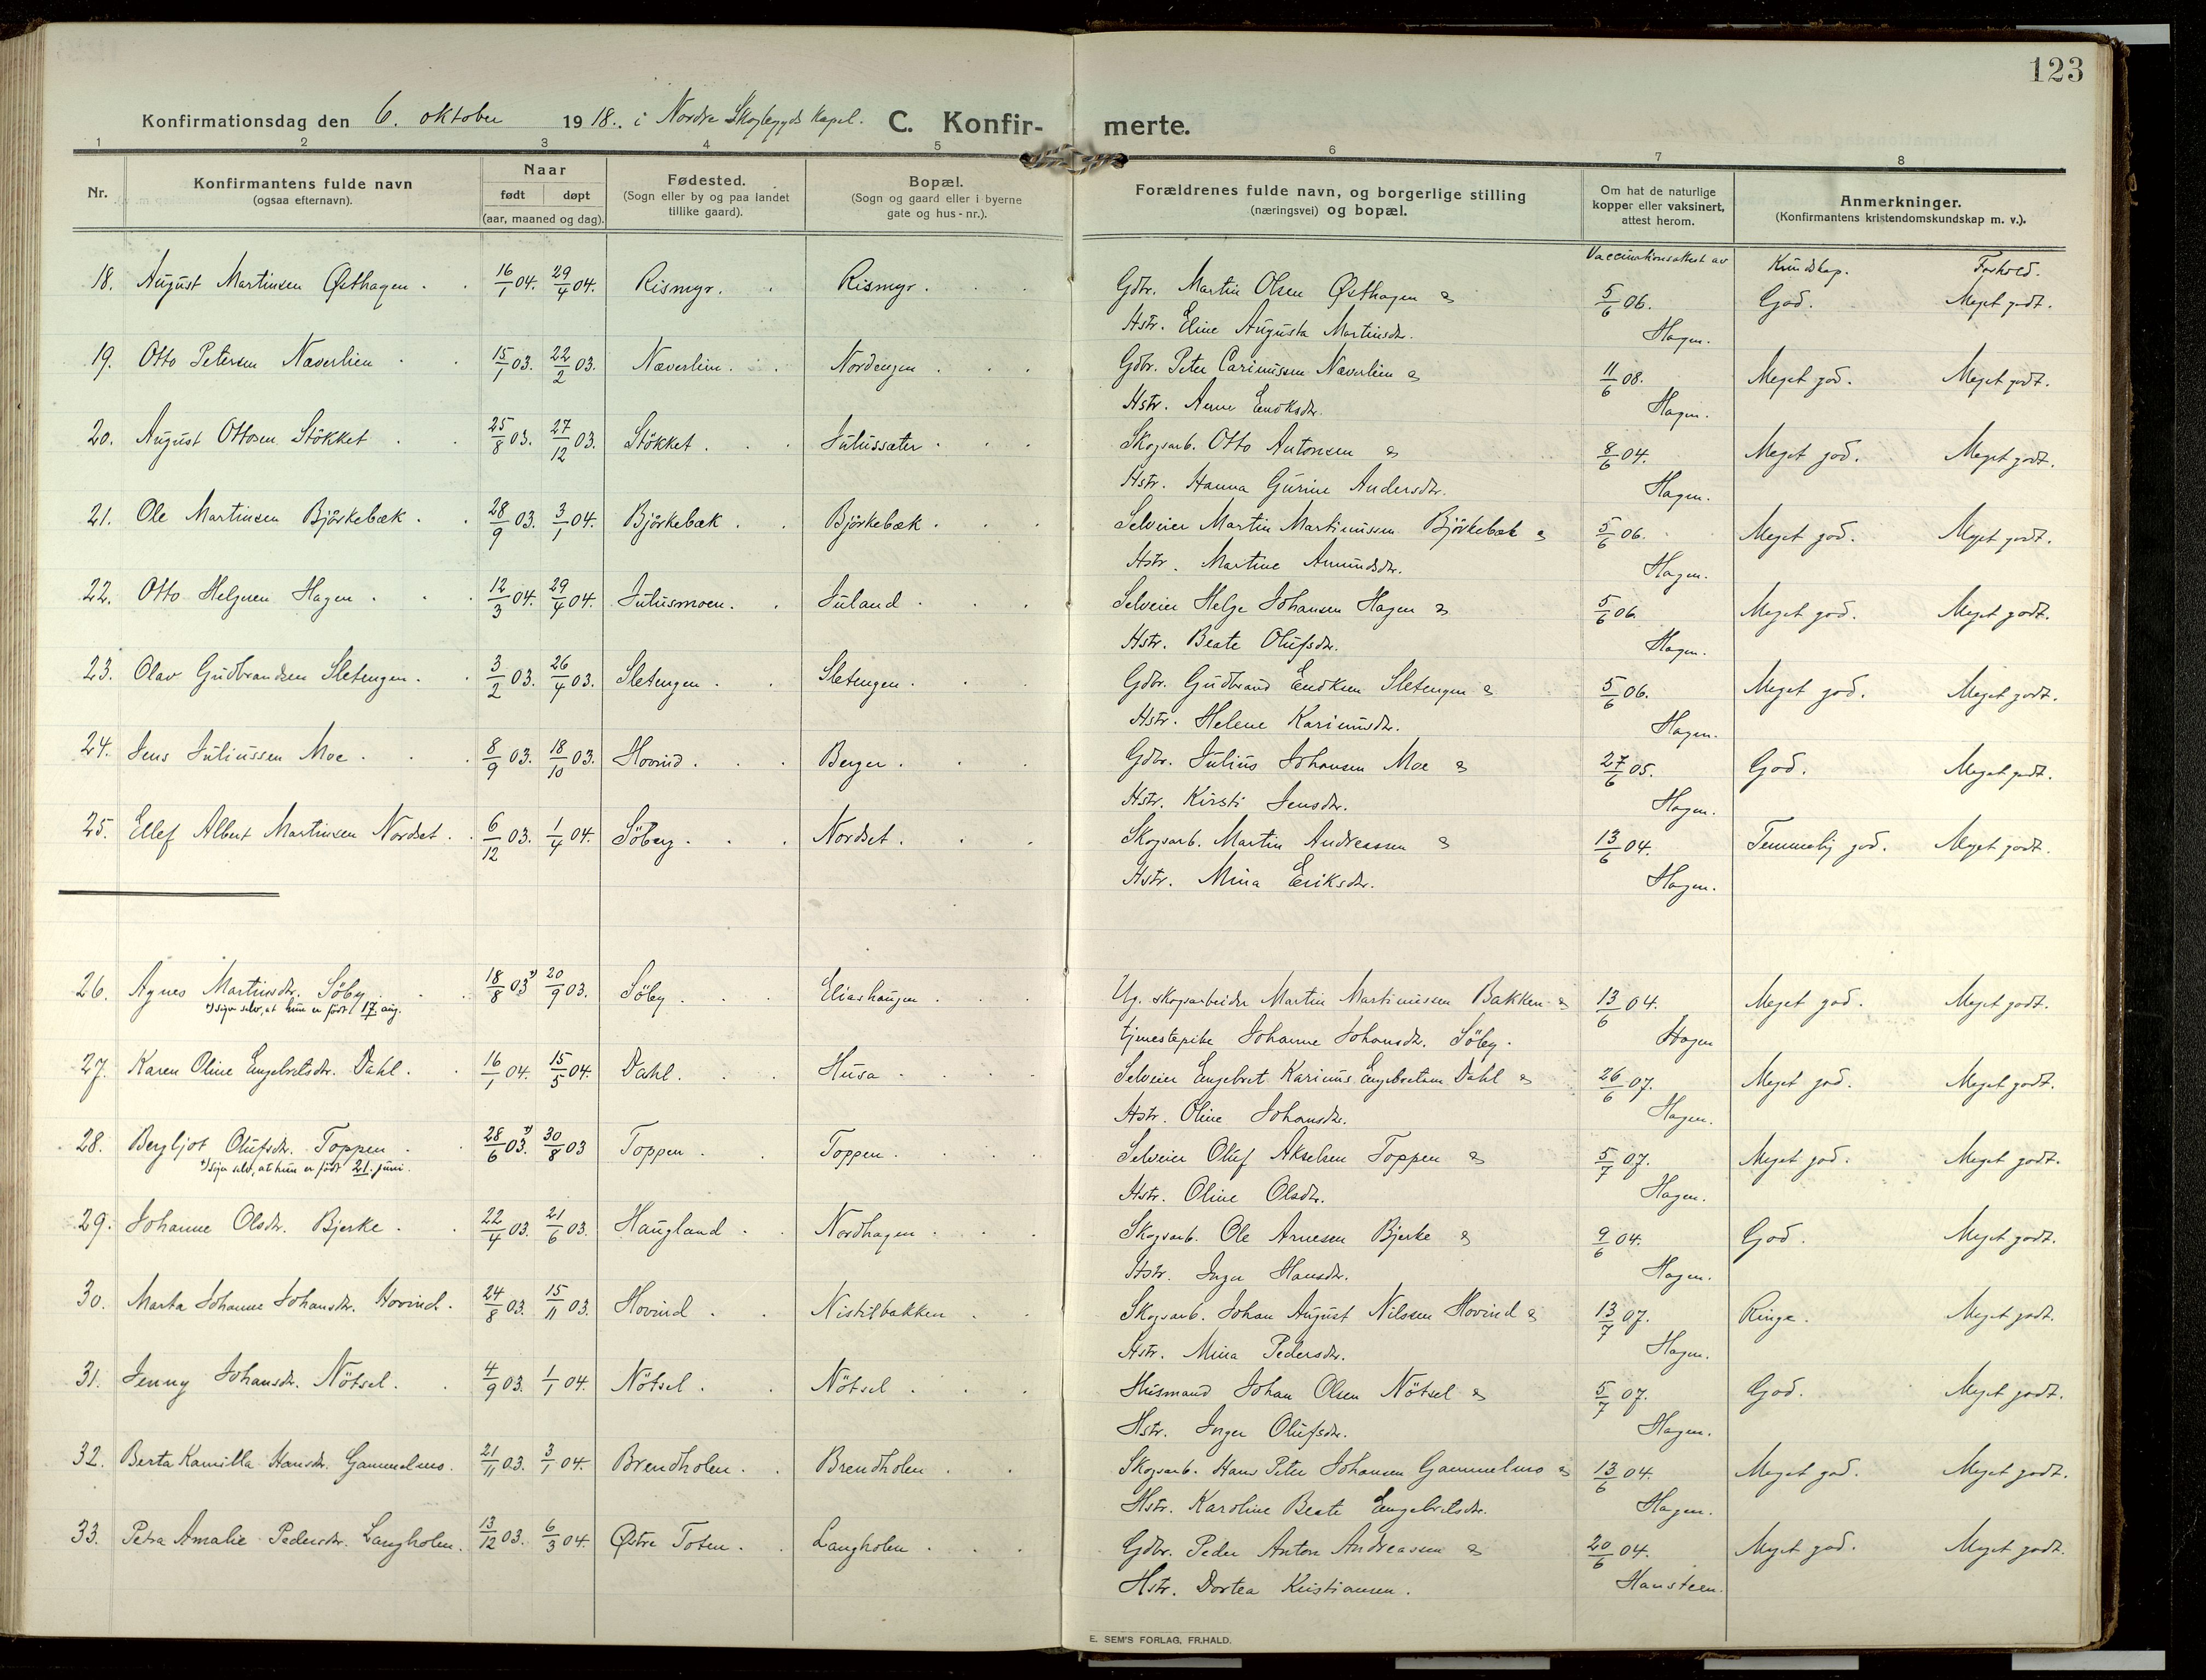 123
Konfirmationsdag den 6. oktober 1918. i Nordre Skogbygds Kapel. C. Konfir- merte.
1 2 3 4 5 6 7 8
Nr. Konfirmantens fulde navn (ogsaa efternavn). Naar født døpt (aar, maaned og dag). Fødested. (Sogn eller by og paa landet tillike gaard). Bopæl. (Sogn og gaard eller i byerne gate og hus-nr.). Forældrenes fulde navn, og borgerlige stilling (næringsvei) og bopæl. Om hat de naturlige kopper eller vaksinert, attest herom. Anmerkninger. (Konfirmantens kristendomskundskap m. v.).
Vaccinationsattest av Kundskap. Forhold.
18. August Martinsen Østhagen 16/1 04. 29/4 04. Rismyr. Rismyr. Gdbr. Martin Olsen Østhagen & 5/6 06. God. Meget godt.
Hstr. Eline Augusta Martinsdtr. Hagen.
19. Otto Petersen Næverlien 15/1 03. 22/2 03. Næverlien. Nordengen Gdbr. Peter Carinussen Næverlien & 11/6 08. Meget god. Meget godt.
Hstr. Anne Eriksdtr. Hagen.
20. August Ottosen Stökket 25/8 03. 27/12 03. Stökket. Julussæter Skogsarb. Otto Antonsen & 8/6 04. Meget god. Meget godt.
Hstr. Hanna Gurine Andersdtr. Hagen.
21. Ole Martinsen Björkebæk 28/9 03. 3/1 04. Björkebæk Björkebæk Selveier Martin Martinussen Björkebæk & 5/6 06. Meget god. Meget godt.
Hstr. Martine Amundsdtr. Hagen.
22. Otto Helgesen Hagen 12/3 04. 29/4 04. Julusmoen. Juland Selveier Helge Johansen Hagen & 5/6 06. Meget god. Meget godt.
Hstr. Beate Olufsdtr. Hagen.
23. Olav Gudbrandsen Sletengen 3/2 03. 26/4 03. Sletengen Sletengen Gdbr. Gudbrand Eriksen Sletengen & 5/6 06. Meget god. Meget godt.
Hstr. Helene Karinusdtr. Hagen.
24. Jens Juliussen Moe 8/9 03. 18/10 03. Hovind Berger Gdbr. Julius Johansen Moe & 27/6 05. God. Meget godt.
Hstr. Kirsti Jensdtr. Hagen.
25. Ellef Albert Martinsen Nordset 6/12 03. 1/4 04. Söberg Nordset. Skogsarb. Martin Andreassen & 13/6 04. Temmelig god. Meget godt.
Hstr. Mina Eriksdtr. Hagen.
26. Agnes Martinsdtr. Söby 18/8 03 *) 20/9 03. Söby Eliashaugen Ug. skogsarbeider Martin Martinussen Bakken & 13/6 04. Meget god. Meget godt.
*) siger selv, at hun er födt 17. aug. tjenestepike Johanne Johansdtr. Söby. Hagen
27. Karen Oline Engebretsdtr. Dahl 16/1 04. 15/5 04. Dahl. Husa Selveier Engebret Karinus Engebretsen Dahl & 26/6 07. Meget god. Meget godt.
Hstr. Oline Johansdtr. Hagen.
28. Bergljot Olufsdtr. Toppen 28/6 03. *) 30/8 03 Toppen Toppen Selveier Oluf Akselsen Toppen & 5/7 07. Meget god. Meget godt.
*) siger selv, at hun er födt 21. juni. Hstr. Oline Olsdtr. Hagen.
29. Johanne Olsdtr. Bjerke 22/4 03. 21/6 03. Haugland Nordhagen Skogsarb. Ole Arnesen Bjerke & 9/6 04. God. Meget godt.
Hstr. Inga Hansdtr. Hagen.
30. Marta Johanne Johansdtr. Hovind. 24/8 03. 15/11 03. Hovind Nistilbakken Skogsarb. Johan August Nilssen Hovind & 13/7 07. Ringe. Meget godt.
Hstr. Mina Pedersdtr. Hagen.
31. Jenny Johansdtr. Nötsel. 4/9 03. 1/1 04. Nötsel Nötsel Husmand Johan Olsen Nötsel & 5/7 07. God. Meget godt.
Hstr. Inger Olufsdtr. Hagen.
32. Berta Kamilla Hansdtr. Gammelmo. 21/11 03. 3/1 04. Brendholen Brendholen Skogsarb. Hans Peter Johansen Gammelmo & 13/6 04. Meget god. Meget godt.
Hstr. Karoline Beate Engebretsdtr. Hagen.
33. Petra Amalie Pedersdtr. Langholen. 13/12 03. 6/3 04. Østre Toten. Langholen Gdbr. Peder Anton Andreassen & 20/6 04. Meget god. Meget godt.
Hstr. Dortea Kristiansen. Hansteen.
E. SEM'S FORLAG, FR.HALD.